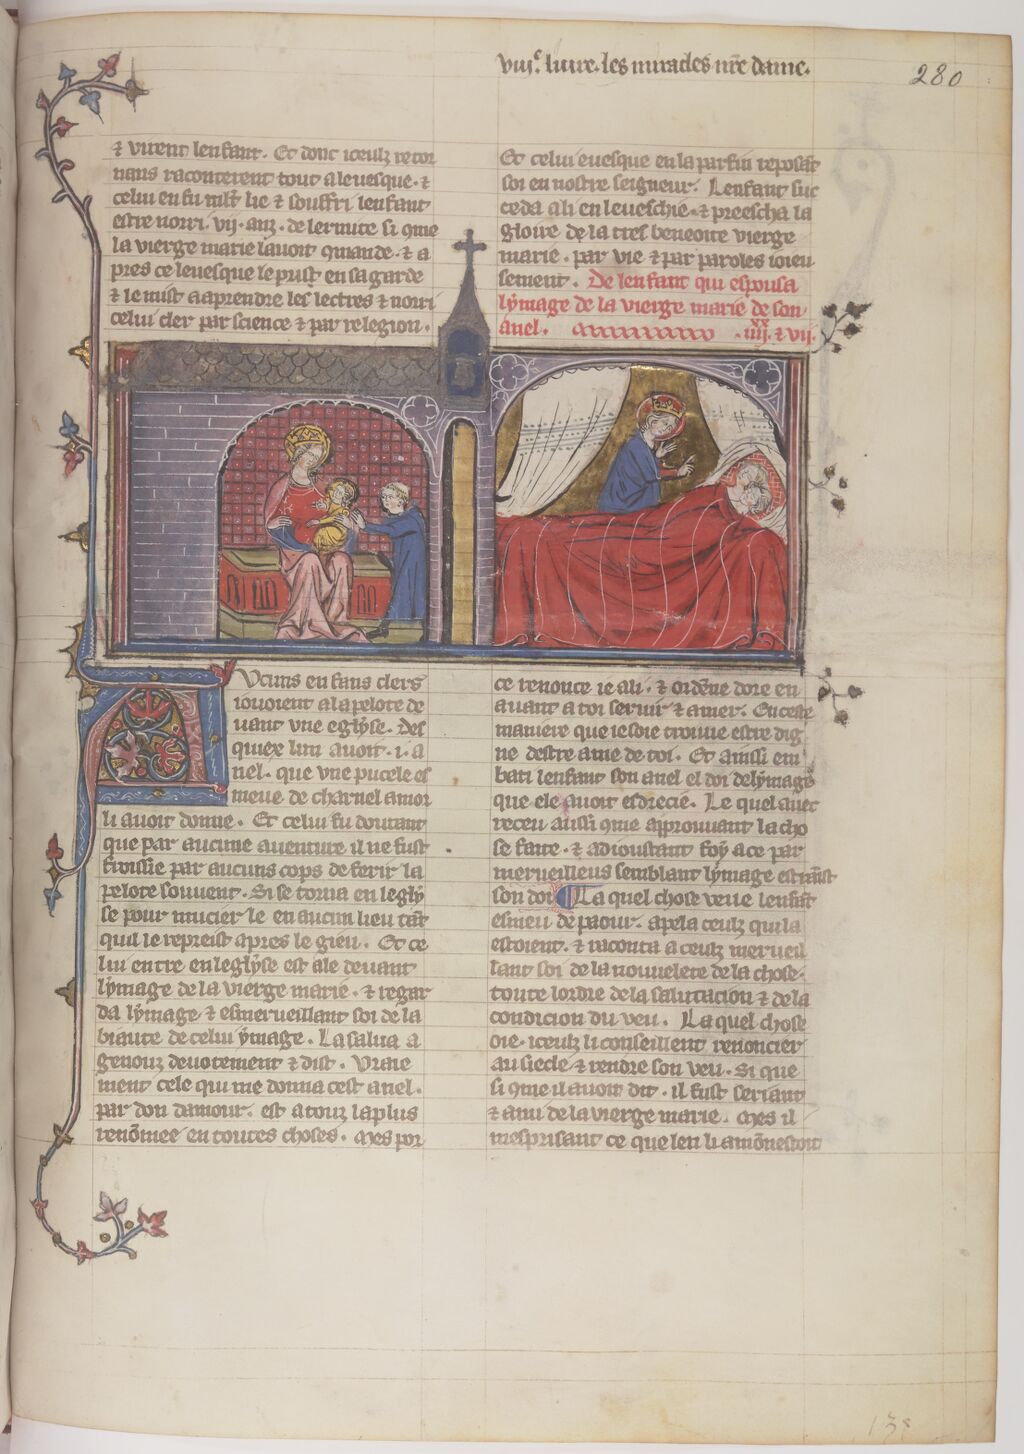 viije. liure. les miracles nr̃e dame.
280
⁊ virent lenfant. Et donc iceulz retor
nans raconterent tout a leuesque. ⁊
celui en fu mlt̃ lie ⁊ souffri lenfant
estre norri. vij. anz. de lermite si ꝯme
la vierge marie lauoit ꝯmande. ⁊ a
pres ce leuesque le prist en sa garde
⁊ le mist a aprendre les lectres ⁊ norri
celui cler par science ⁊ par religion.
Et celui euesque en la parfin reposãt
soi en nostre seigneur. Lenfant suc
ceda a li en leueschie. ⁊ preescha la
gloire de la tres benoite vierge
marie. par vie ⁊ par paroles ioieu
sement. De lenfant qui espousa
lymage de la vierge marie de son
anel. .iiijxx. ⁊ vij.
Aucuns enfans clers
iouoient a la pelote de
uant vne eglyse. Des
quiex lun auoit .i. a
nel. que vne pucele es
meue de charnel amor
li auoit donne. Et celui fu doutant
que par aucune auenture il ne fust
froissie par aucuns cops de ferir la
pelote souuent. Si se torna en legly
se pour mucier le en aucun lieu tãt
quil le repreist apres le gieu. Et ce
lui entre en leglyse est ale deuant
lymage de la vierge marie. ⁊ regar
da lymage ⁊ esmerueillant soi de la
biaute de celui ymage. La salua a
genouz deuotement ⁊ dist. Vraie
ment cele qui me donna cest anel.
par don damour. est a touz la plus
renõmee en toutes choses. Mes por
ce renonce ie a li. ⁊ ordene dore en
auant a toi seruir ⁊ amer. En ceste
maniere que ie soie trouue estre dig
ne destre ame de toi. Et ainssi em
bati lenfant son anel el doi de lymage
que ele auoit esdrecie. Le quel auec
receu aussi ꝯme approuuant la cho
se faite. ⁊ adioustant foy a ce par
merueilleus semblant lymage estraĩst
son doi La quel chose veue lenfãt
esmeu de paour. apela ceulz qui la
estoient. ⁊ raconta a ceulz merueil
lant soi de la nouuelete de la chose.
toute lordre de la salutacion ⁊ de la
condicion du veu. La quel chose
oie. iceulz li conseillent renoncier
au siecle ⁊ rendre son veu. Si que
si ꝯme il auoit dit. il fust seriant
⁊ ami de la vierge marie. Mes il
mesprisant ce que len li amõnestoit